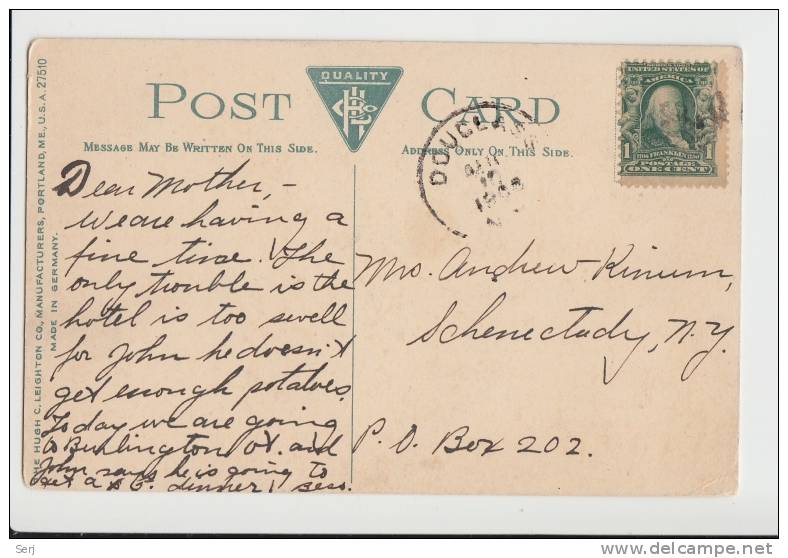 THE HUGH C. LEIGHTON CO., MANUFACTURERS, PORTLAND, ME., U.S.A. 27510
MADE IN GERMANY.
POST CARD
QUALITY
MESSAGE MAY BE WRITTEN ON THIS SIDE.
ADDRESS ONLY ON THIS SIDE.
UNITED STATES OF
AMERICA
1706 FRANKLIN 1790
1 POSTAGE 1
ONE CENT
DOUGLAS
Dear Mother, -
We are having a
fine time. The
only trouble is the
hotel is too swell
for John he doesn't
get enough potatoes.
Today we are going
to Burlington Vt. and
John says he is going to
get a dinner! Bess.
Andrew Kinum,
Schenectady, N.Y.
P. O. Box 202.
Serj
www.delcampe.net